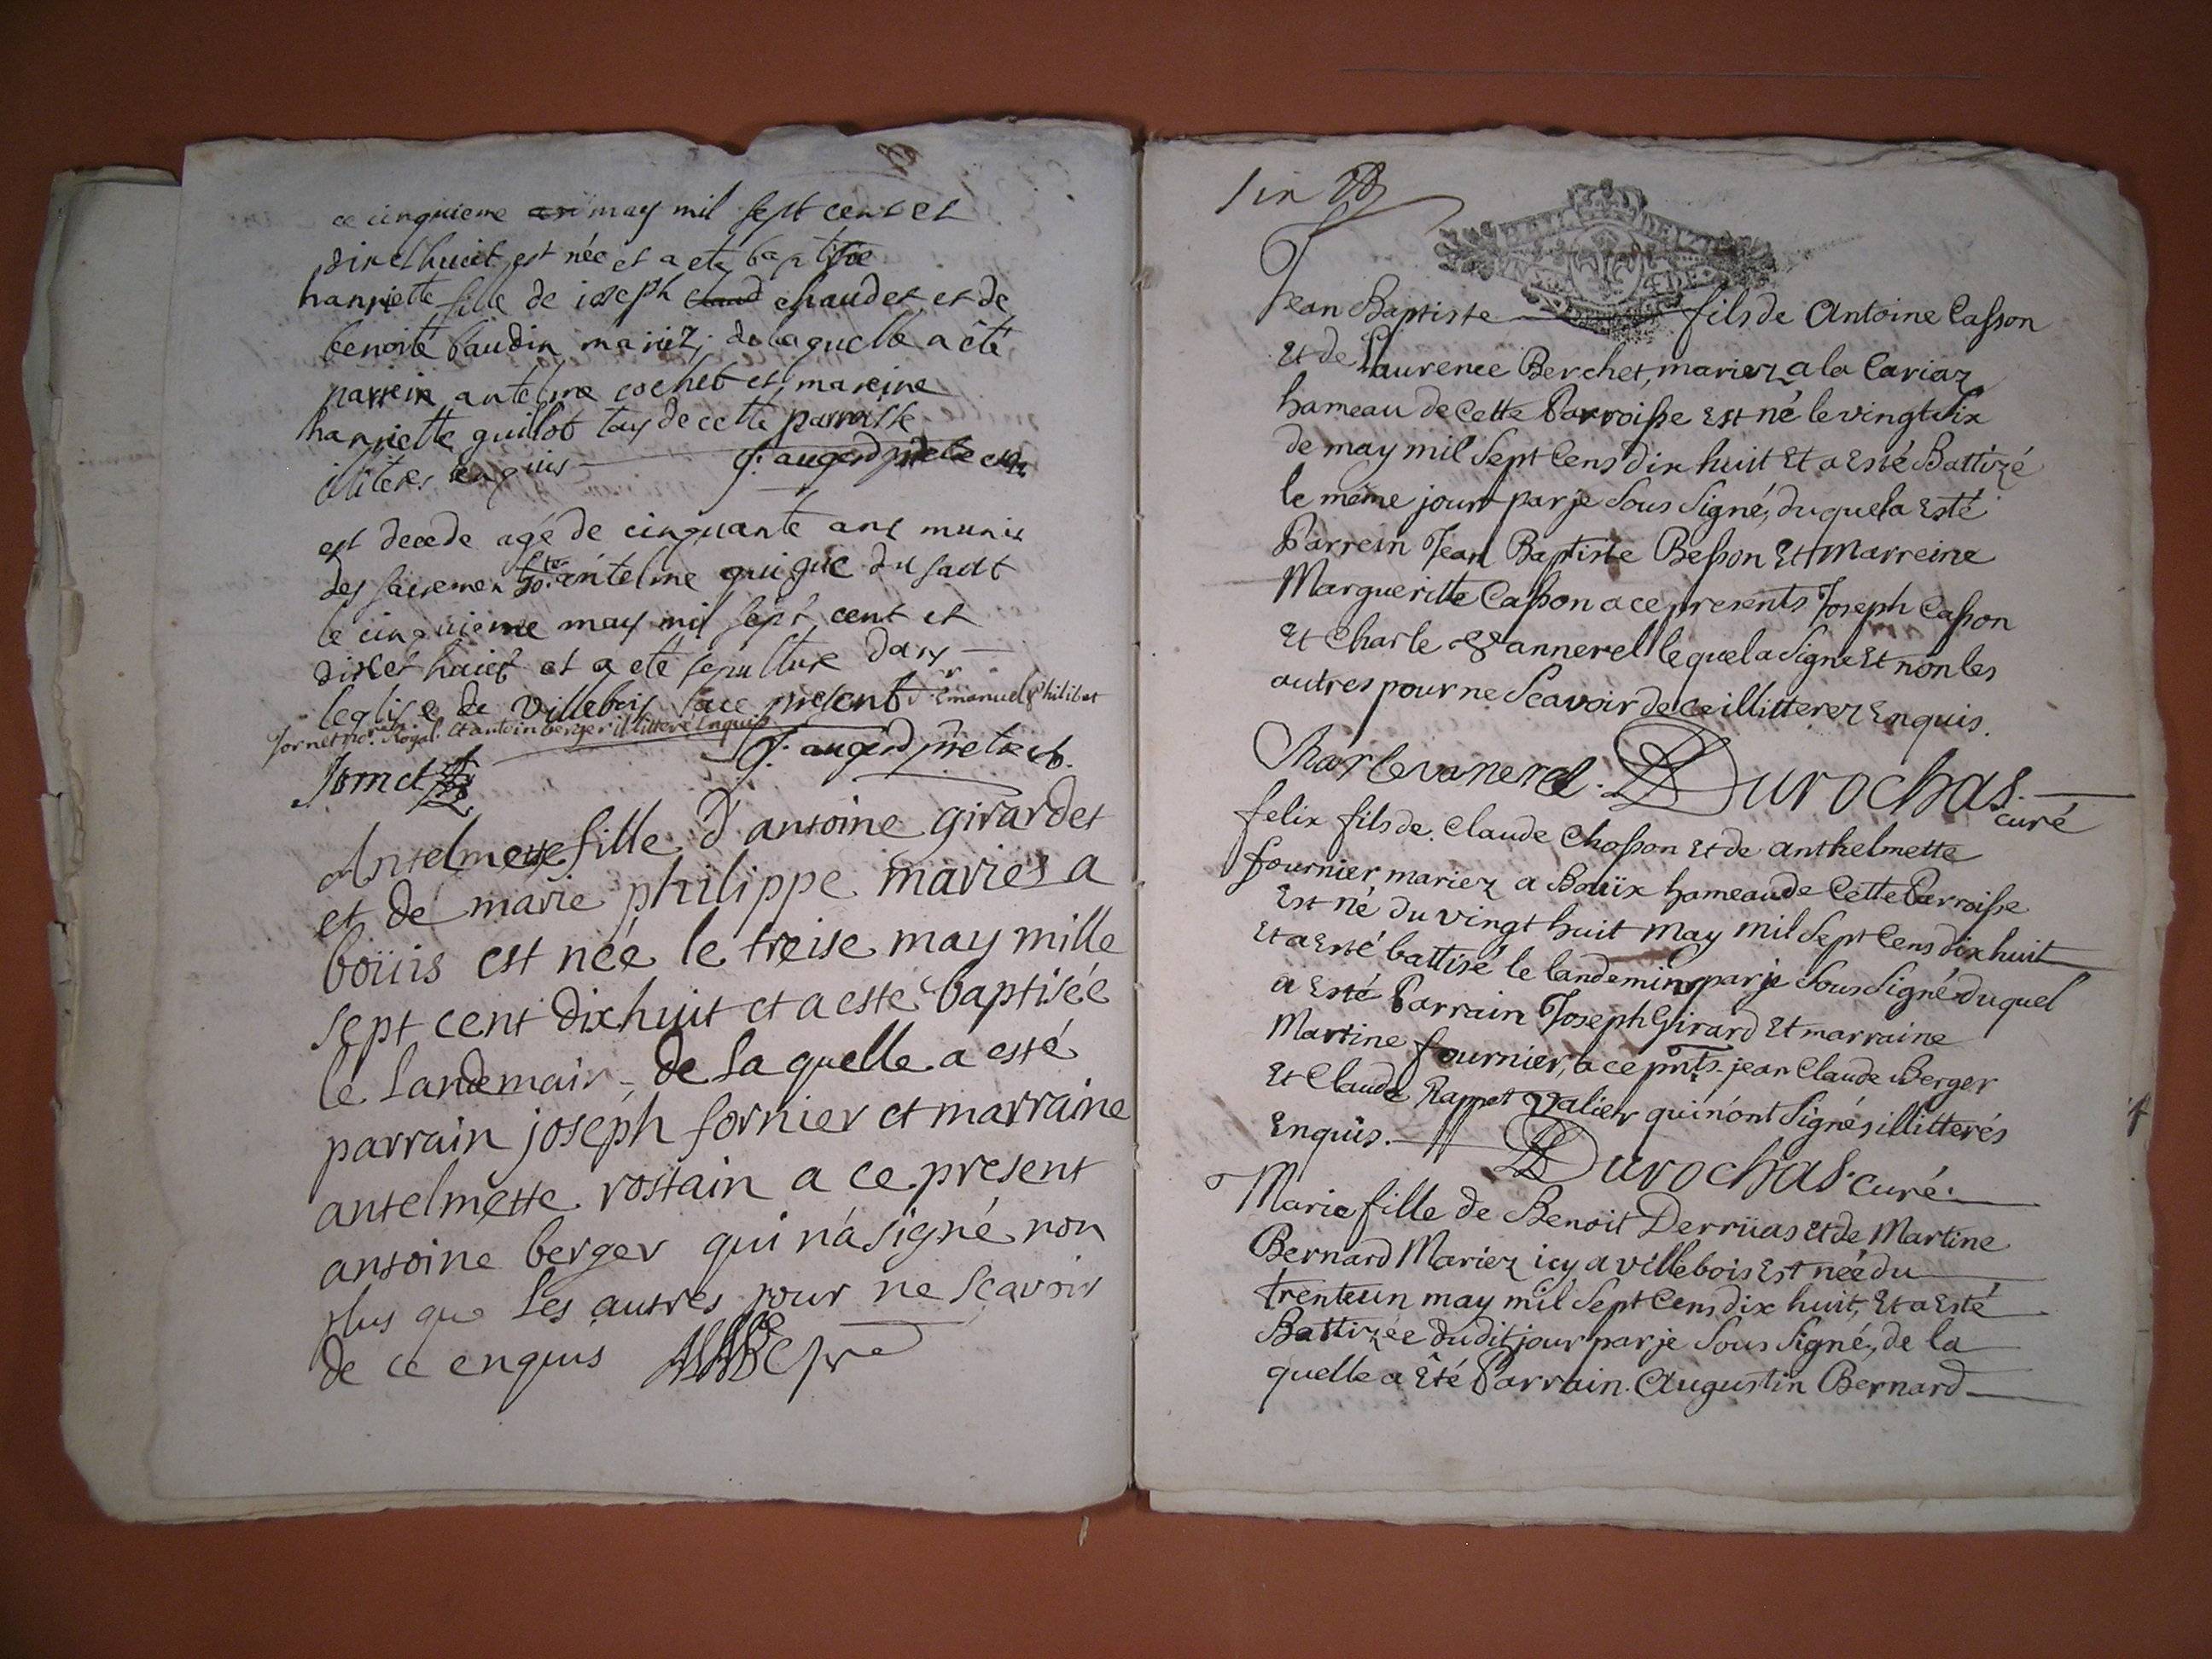 ce cinquieme may mil sept cent et
dix et huict est née et a ete baptisée
hanriette fille de ioseph chaudet et de
benoite baudin mariez, de laquelle a été
parrein antelme cochet et mareine
hanriette guillot tous de cette parroisse
iliteres enquis J. augerd pretre
est decede agé de cinquante ans munis
des sacremen antelme guigue du sault
le cinquieme may mil sept cent et
dixet huict et a eté sepulture dans
leglise de villebois a ce present Emanuel Philibet
Jornet Royal et antoin berger illitteré enquis
Jornet J. augerd pretre
Antelmette fille d'antoine girardet
et de marie philippe mariés a
boüis est née le treise may mille
sept cent dixhuit et a esté baptisée
le landemain de laquelle a esté
parrain joseph fornier et marraine
antelmette rostain a ce present
antoine berger qui n'a signé non
plus que les autres pour ne scavoir
de ce enquis
Jean Baptiste fils de Antoine Casson
Et de Laurence Berchet, mariez a la Cariaz
hameau de Cette Parroisse Est né le vingt six
de may mil Sept Cens dix huit Et a Esté Battizé
le même jour par je Sous Signé, duquel a Esté
Parrein Jean Baptiste Besson Et Marreine
Margueritte Casson a ce presents Joseph Casson
Et Charle Vannerel lequel a Signé Et non les
autres pour ne Scavoir de ce illitterez Enquis.
Charle vanerel. Durochas curé
felix fils de Claude Chosson Et de anthelmette
fournier mariez a Boüix hameau de Cette Parroisse
Est né du vingt huit May mil Sept Cens dix huit
Et a Esté battisé le landemin par je Sous Signé duquel
a Esté Parrain Joseph Girard Et marraine
Martine fournier, a ce pnts. jean Claude Berger
Et Claude Rappet valier qui n'ont Signés illitterés
Enquis. Durochas curé
Marie fille de Benoit Derrüas Et de Martine
Bernard Mariez icy a villebois Est née du
trenteun may mil Sept Cens dix huit, Et a Esté
Battizée dudit jour par je Sous Signé, de la
quelle a Eté Parrain Augustin Bernard